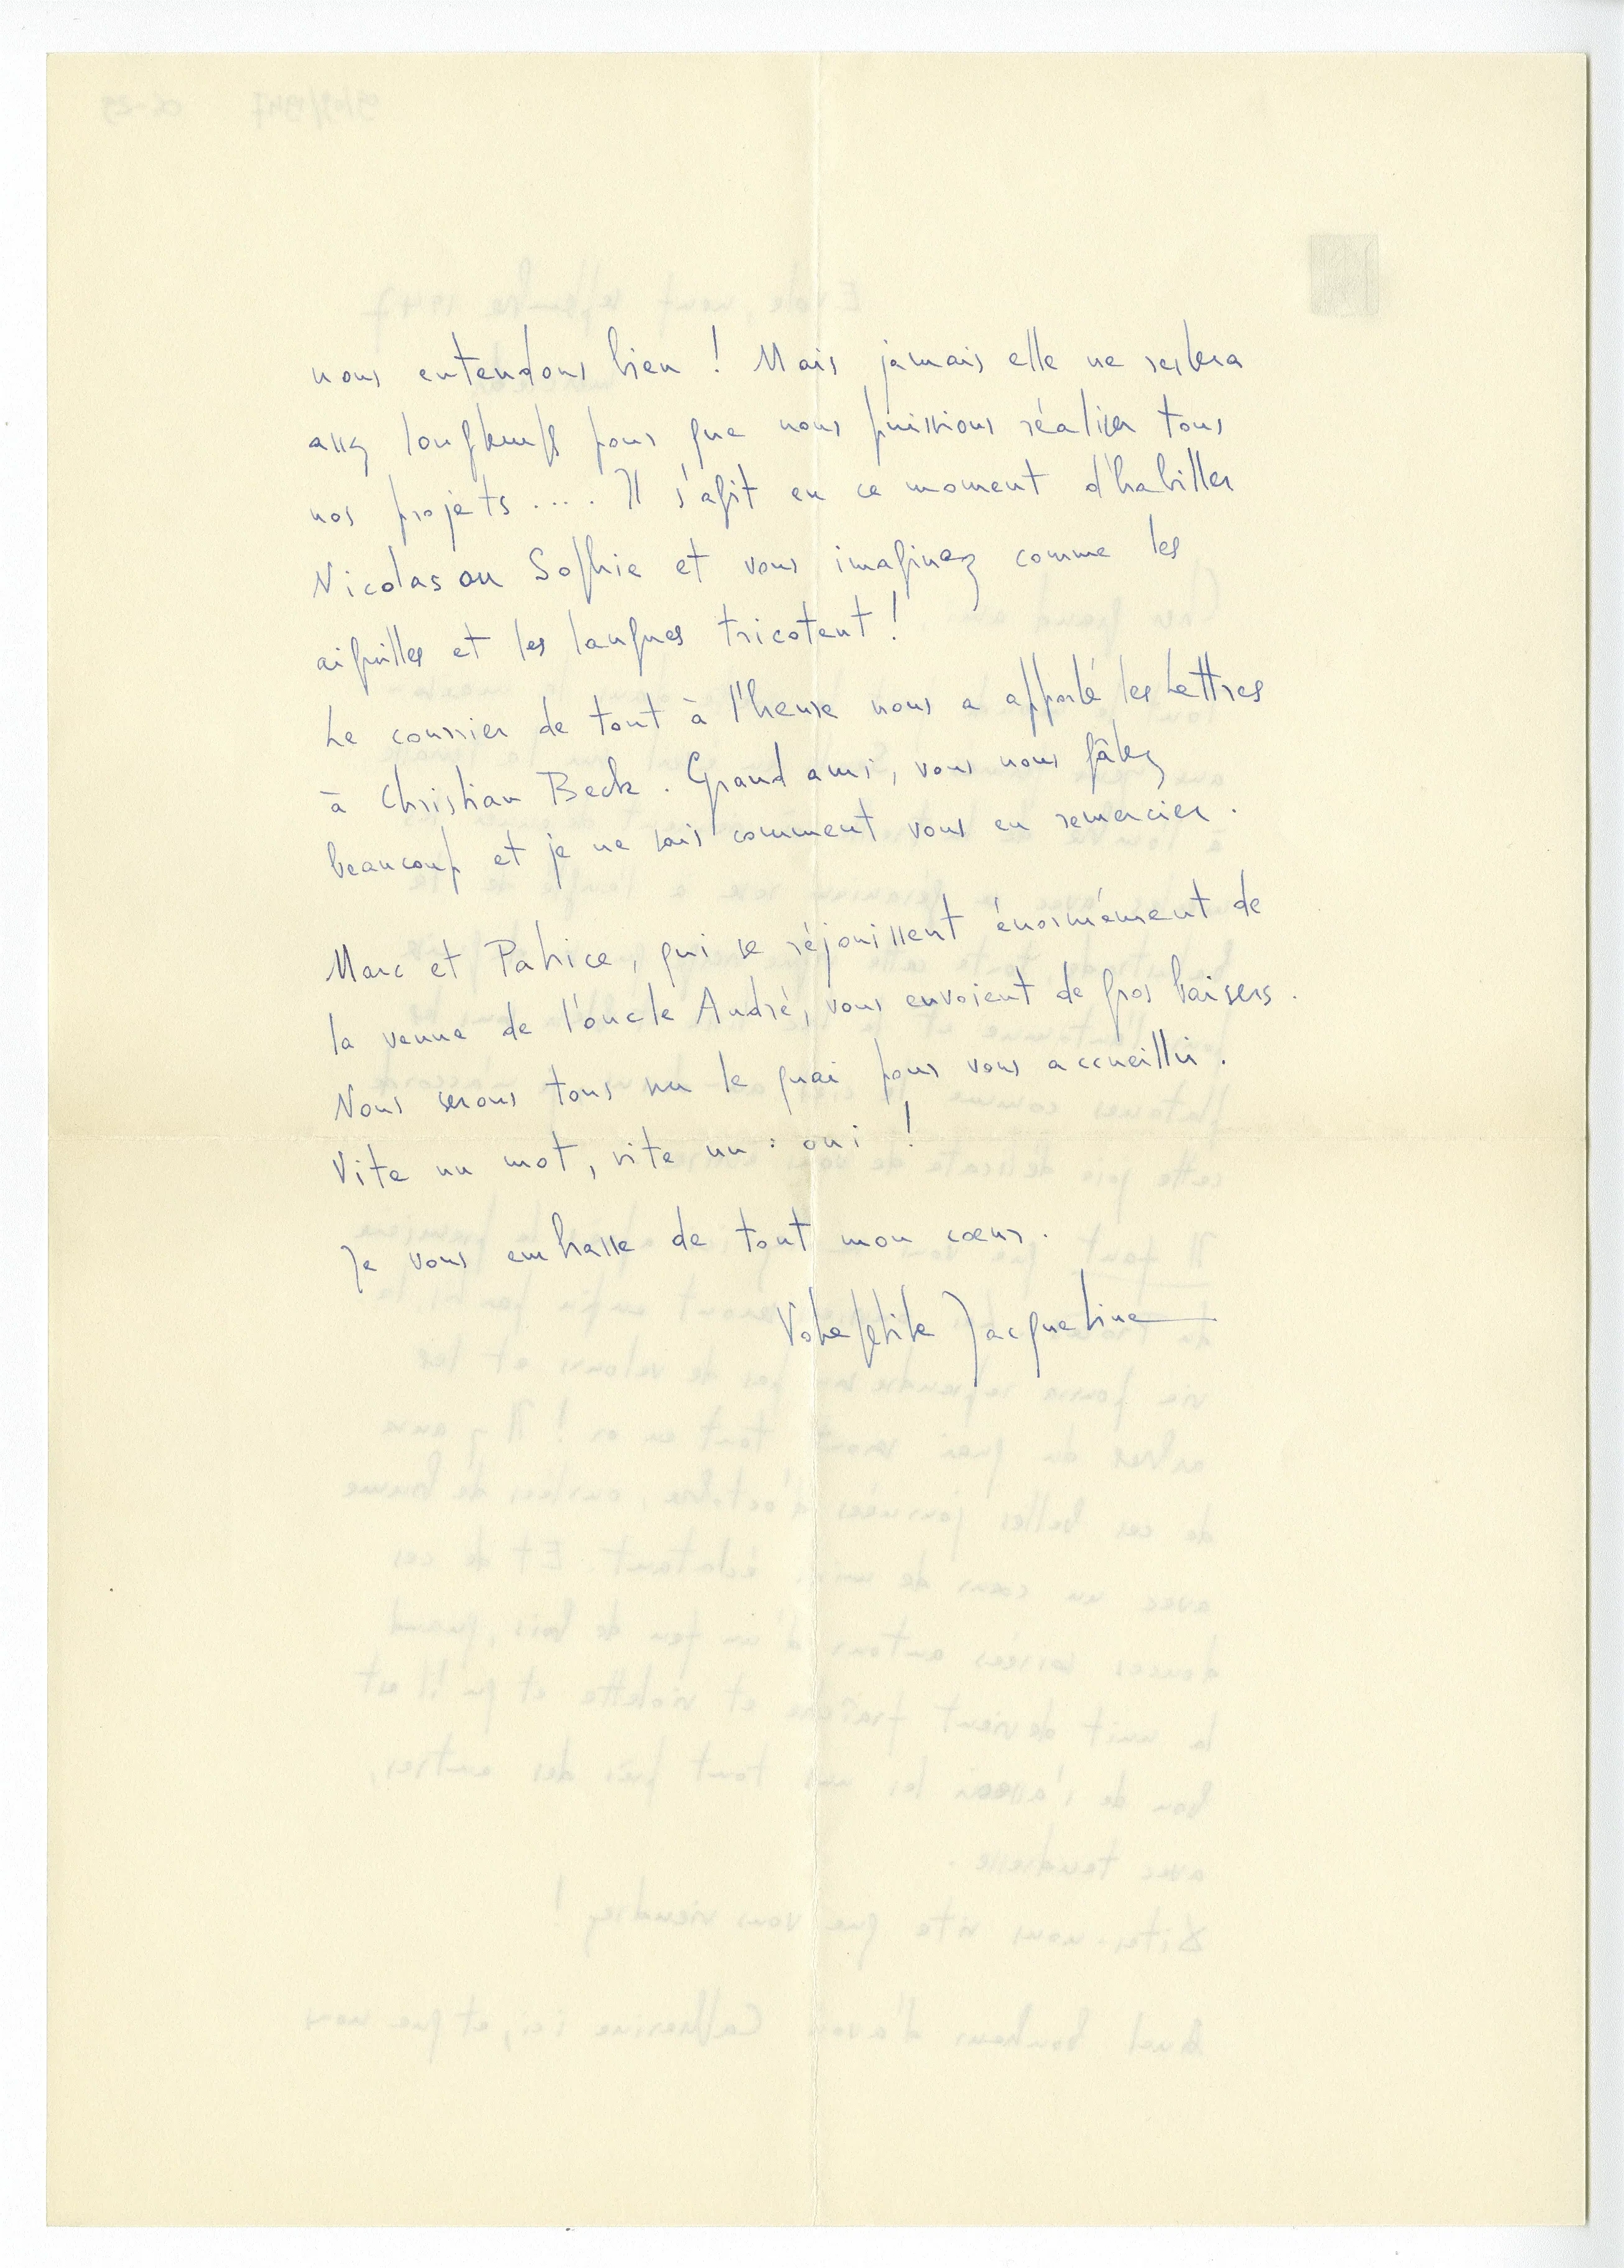 nous entendons bien ! Mais jamais elle ne restera
assez longtemps pour que nous puissions réaliser tous
nos projets .... Il s'agit en ce moment d'habiller
Nicolas ou Sophie et vous imaginez comme les
aiguilles et les langues tricotent !
Le courrier de tout à l'heure nous a apporté les Lettres
à Christian Beck. Grand ami, vous nous gâtez
beaucoup et je ne sais comment vous en remercier.
Marc et Patrice, qui se réjouissent énormément de
la venue de l'oncle André, vous envoient de gros baisers.
Nous serons tous sur le quai pour vous accueillir.
Vite un mot, vite un : oui !
Je vous embrasse de tout mon cœur.
Votre petite Jacqueline